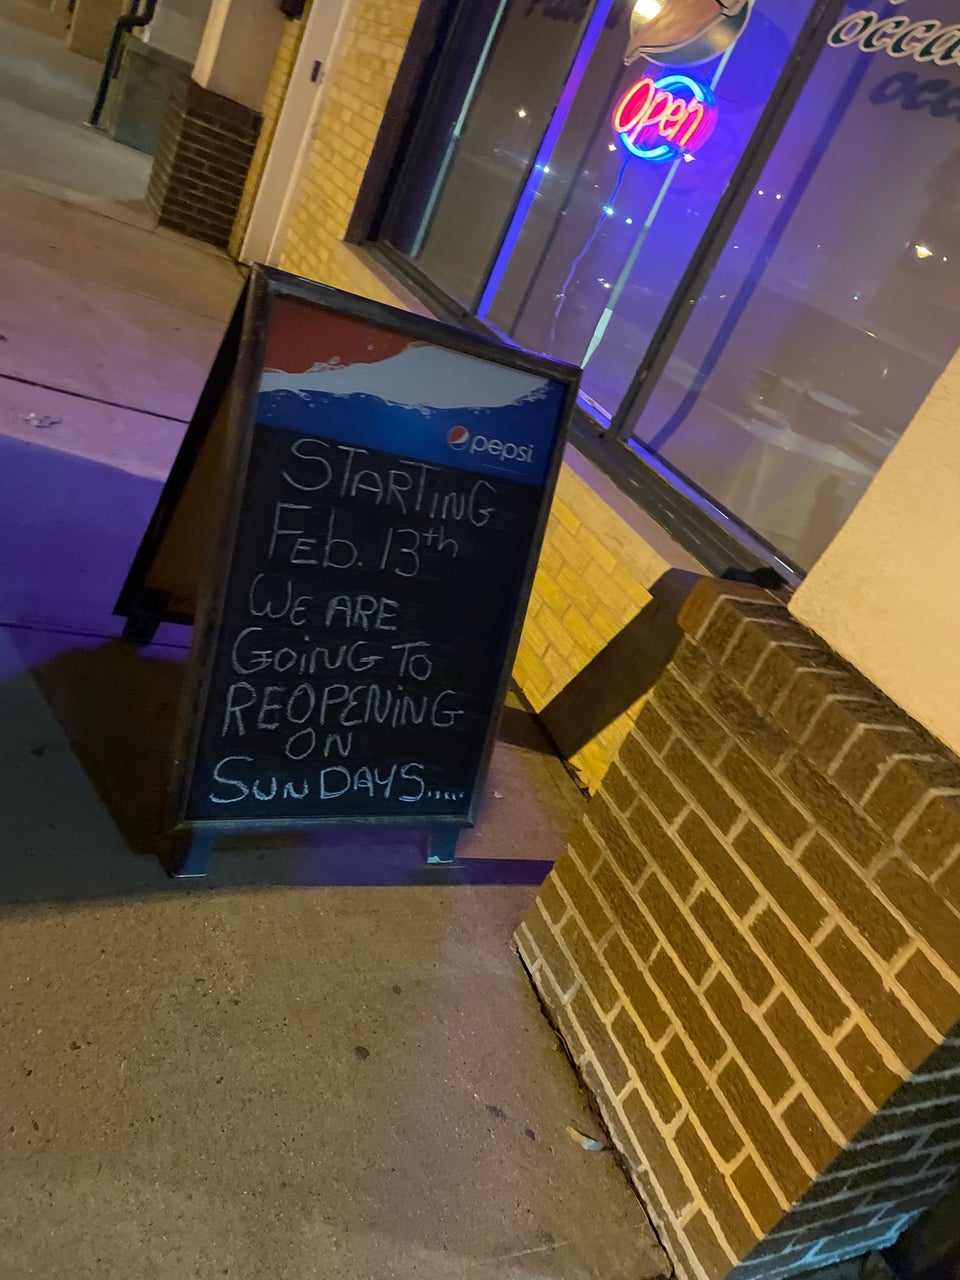 Open
pepsi
STARTING
Feb. 13th
WE ARE
GOiNG TO
REOPENiNG
ON
SUNDAYS.....